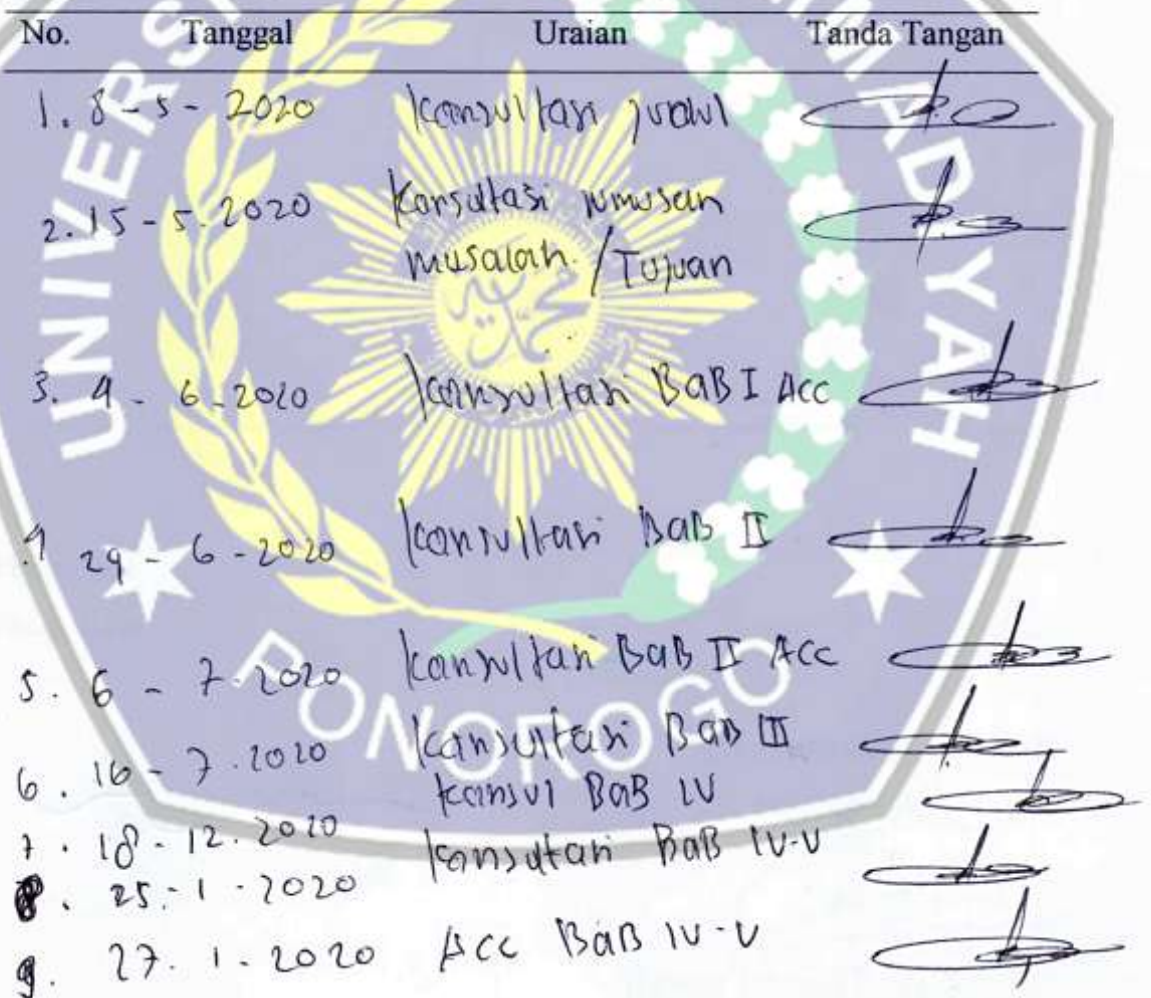 No. Tanggal Uraian Tanda Tangan
1. 8 - 5 - 2020 Konsultasi judul
2. 15 - 5 - 2020 Konsultasi rumusan
masalah / Tujuan
3. 4 - 6 - 2020 Konsultasi BAB I Acc
4 29 - 6 - 2020 Konsultasi BAB II
5. 6 - 7 - 2020 Konsultasi BAB II Acc
6. 16 - 7 - 2020 Konsultasi BAB III
Konsul BAB IV
7. 18 - 12 - 2020 Konsultasi BAB IV-V
8. 25 - 1 - 2020
9. 27 - 1 - 2020 Acc BAB IV-V
محمد
PONOROGO